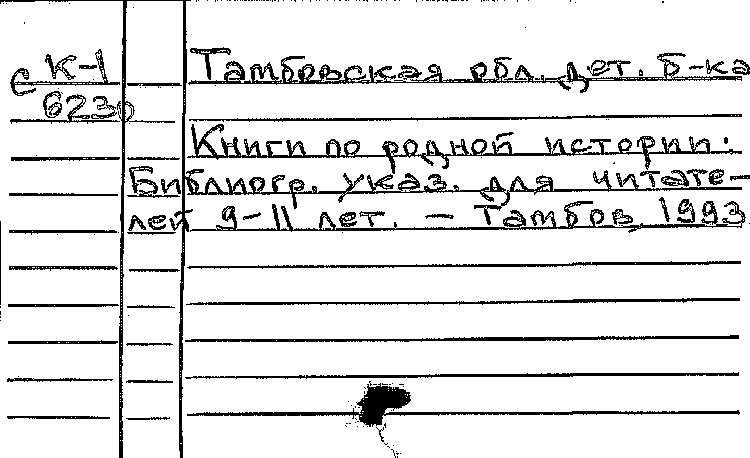 С К-1 Тамбовская обл. дет. б-ка
6230
Книги по родной истории:
Библиогр. указ. для читате-
лей 9-11 лет. - Тамбов, 1993